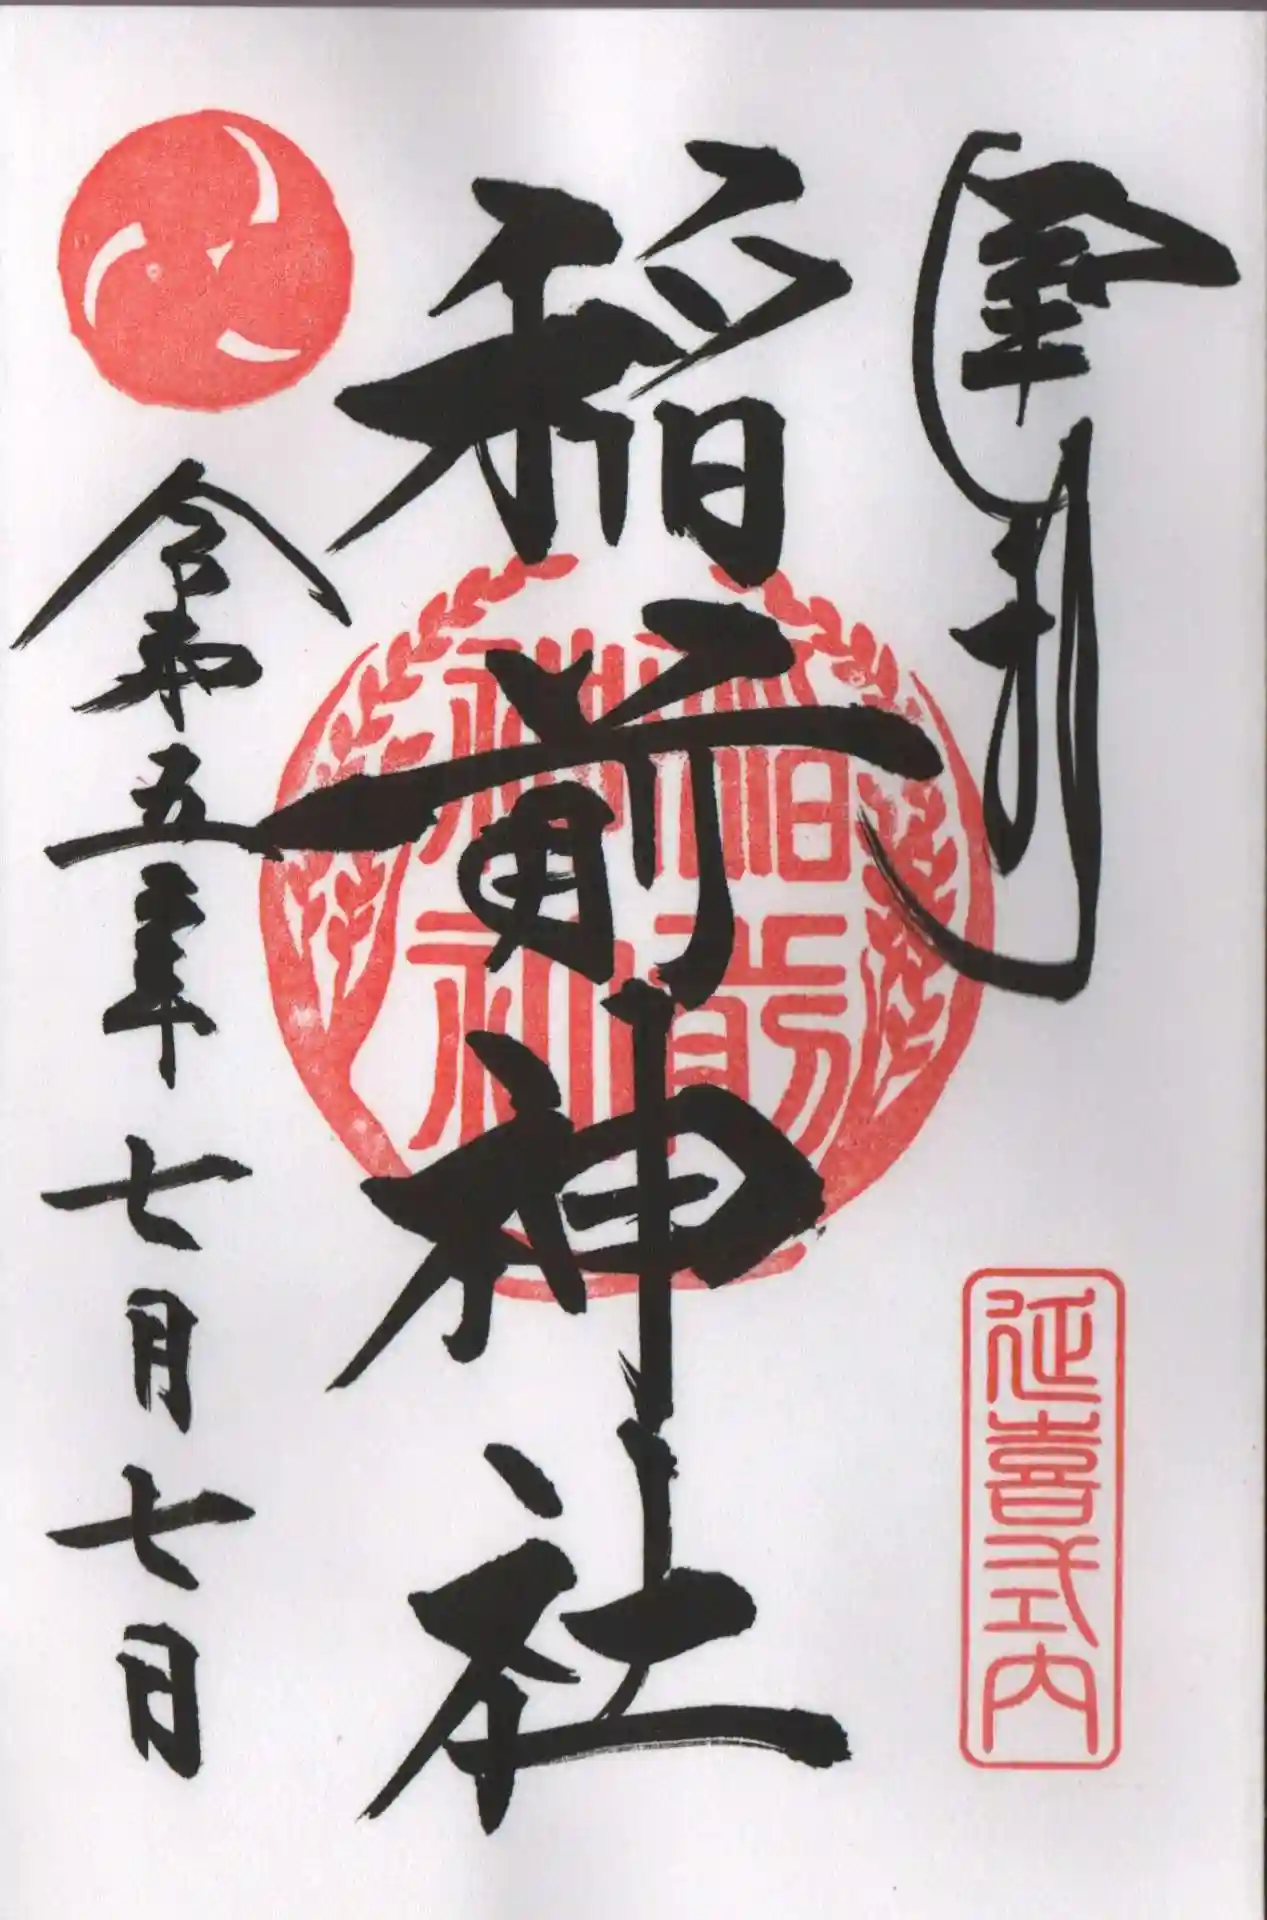 奉拝
延喜式内
稲前神社
稲前
神社
令和五年七月七日